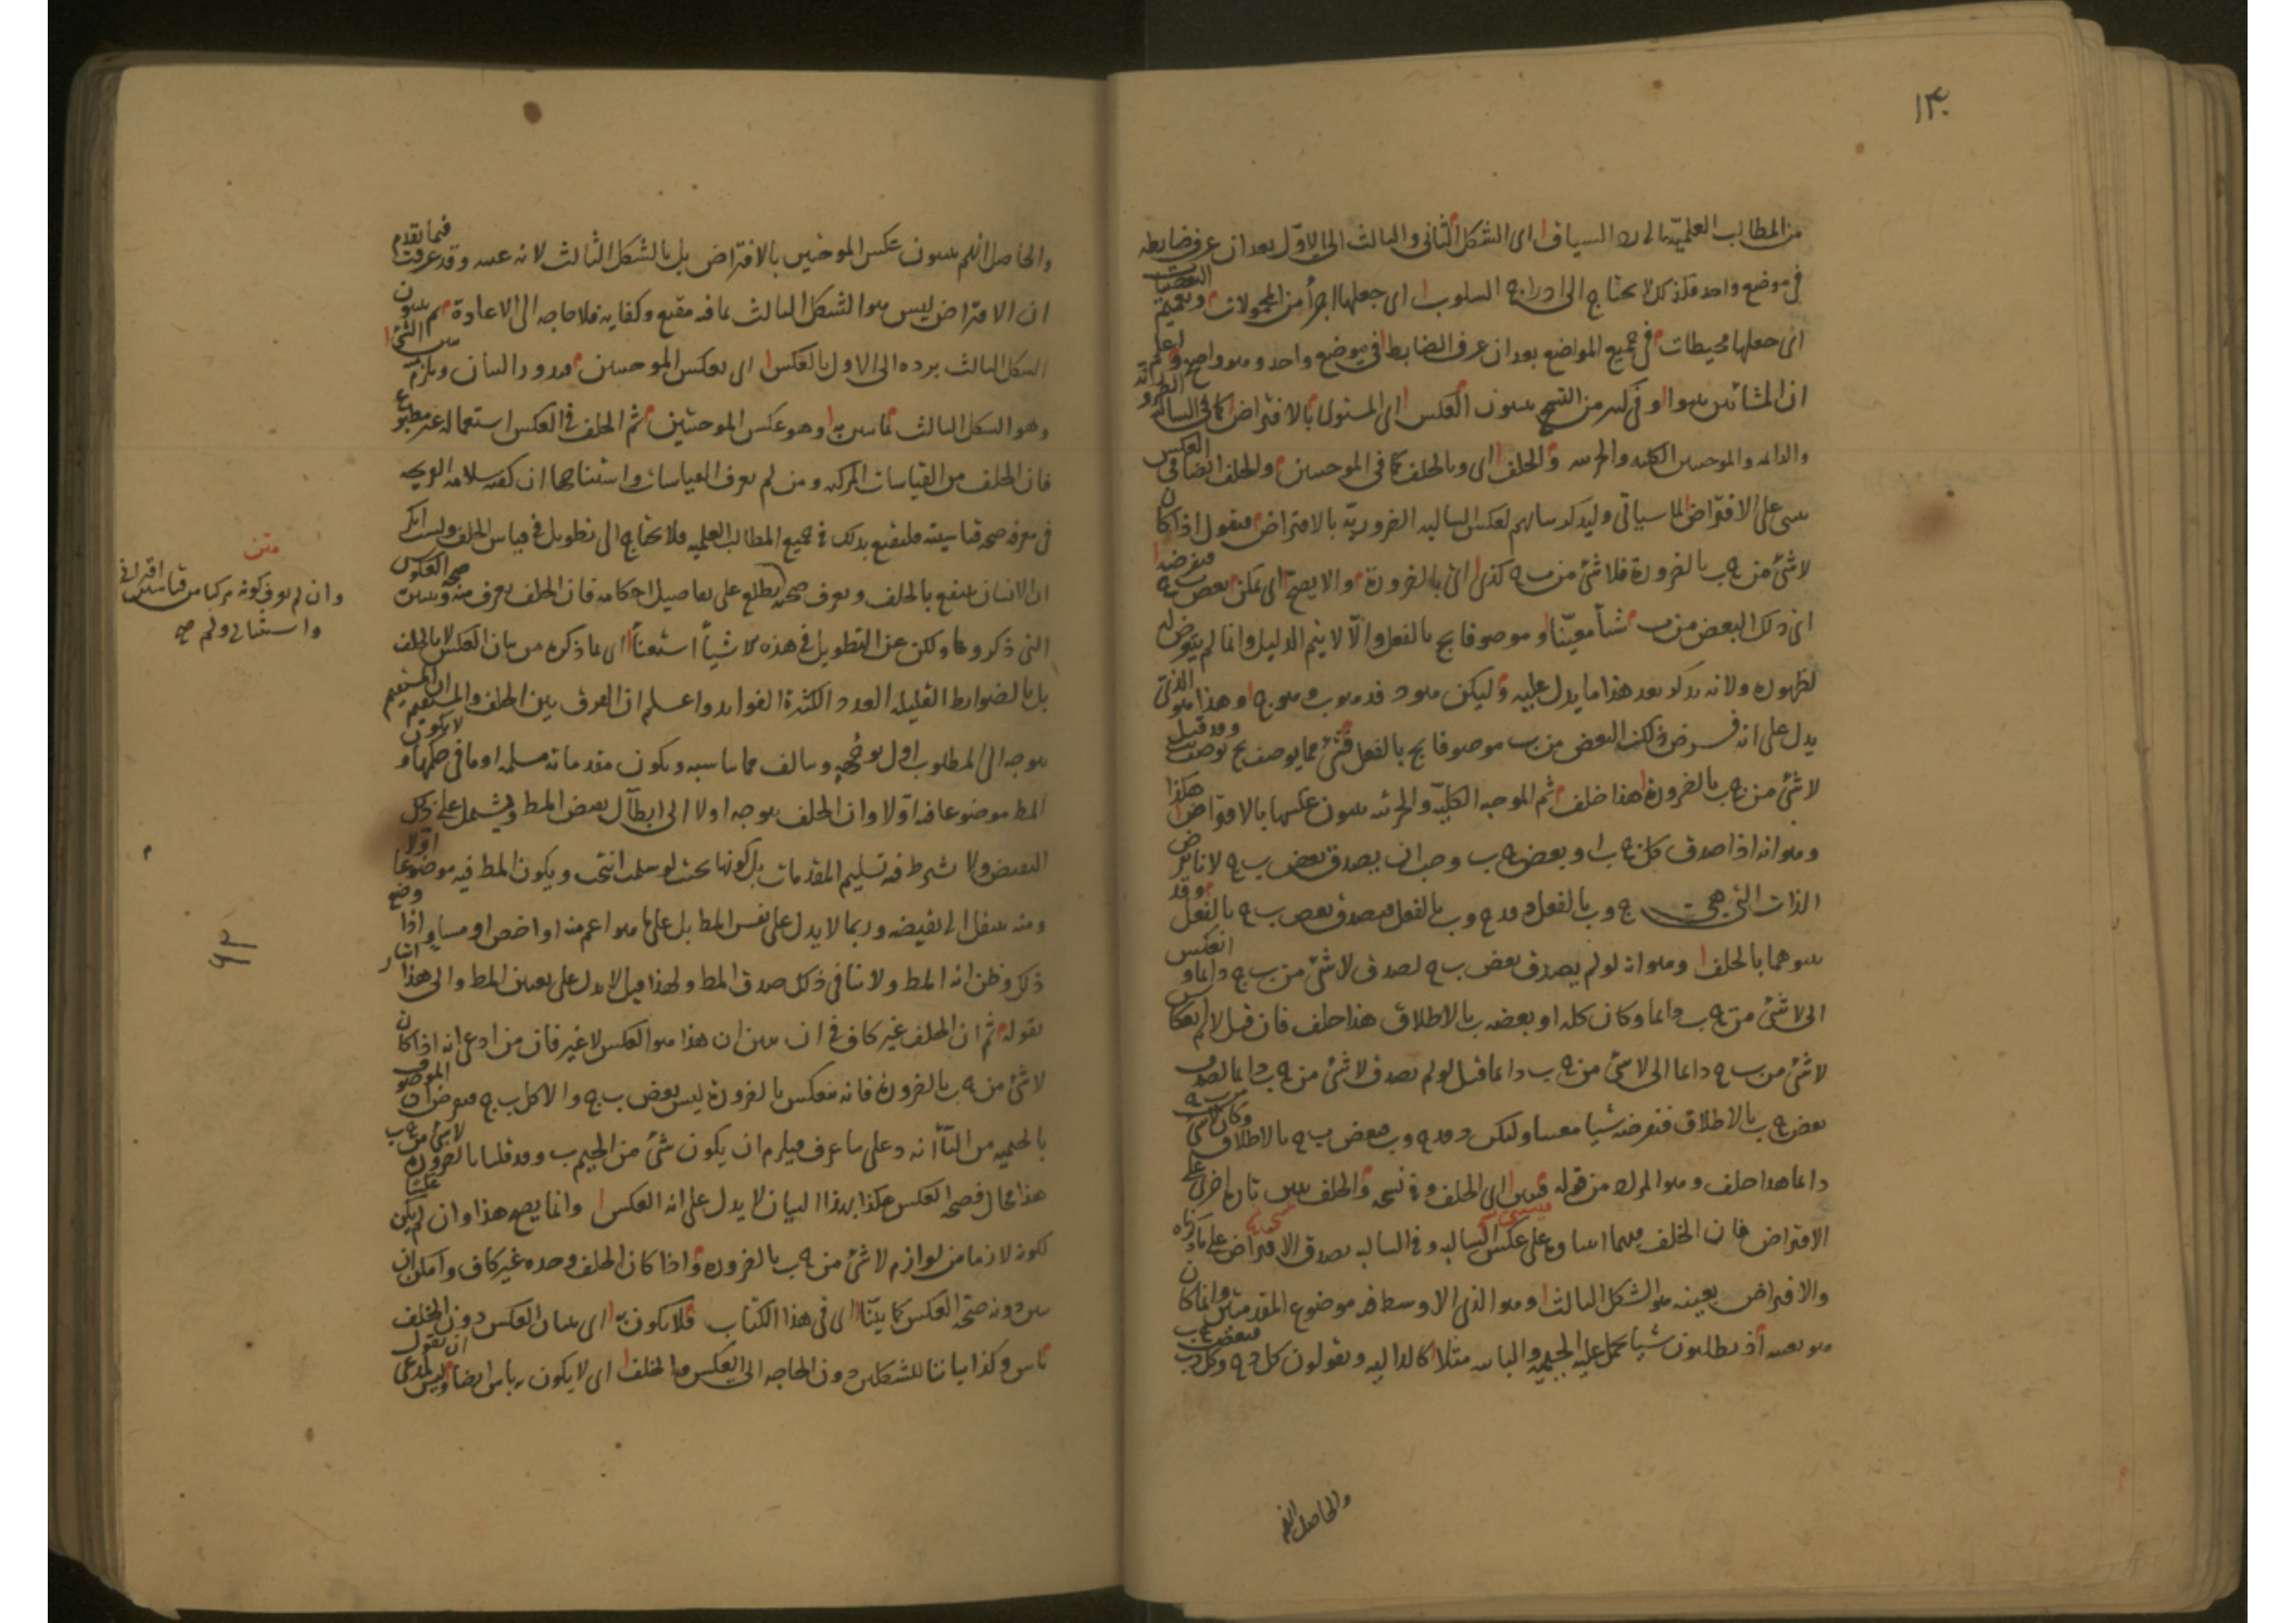 ١٣٠
من المطالب العلمية السياق اى الشكل الثانى والثالث الى الاول بعد ان عرف ضابطه
فى موضع واحد فلذلك لا يحتاج الى ادراج السلوب اى جعلها اجزأ من المحمولات وتعميم البعضيات
اى جعلها محيطات فى جميع المواضع بعد ان عرف الضابط فى موضع واحد وهو واضح اعلم
ان المشائين بينوا وفى كثير من النسخ يبينون العكس اى المستوى بالافتراض كما فى السالبة
والدائمه والموجبتين الكليه والجزئيه والخلف اى وبالخلف كما فى الموجبتين والخلف ايضا فى العكس
يبتنى على الافتراض لما سياتى وليذكر بيانهم لعكس السالبه الضروريّه بالافتراض فنقول اذا كان
لا شئ من ج ب بالضرورة فلا شئ من ب ج كذا اى بالضرورة والا يصح اى يمكن بعض ب ج فنفرضه
اى ذلك البعض من ب شيأ معيّنا وموصوفا بج بالفعل والّا لا يتم الدليل وانما لم يتعرض له
لظهوره ولانه يذكر بعد هذا ما يدل عليه وليكن هو د فد هو ب وهو ج وهذا هو الذى
يدل على انه فرض ذلك البعض من ب موصوفا بج بالفعل فشئ مما يوصف بج يوصف بب وقد قيل
لا شئ من ج ب بالضرورة هذا خلف ثم الموجبه الكليّه والجزئيه يبينون عكسها بالافتراض هكذا
وهو انه اذا صدق كل ج ب او بعض ج ب وجب ان يصدق بعض ب ج لانا نفرض
الذات التى هى ج وب بالفعل د فد ج وب بالفعل فيصدق بعض ب ج بالفعل وقد
بينوهما بالخلف وهو انه لو لم يصدق بعض ب ج لصدق لا شئ من ب ج دائما وانعكس
الى لا شئ من ج ب دائما وكان كله او بعضه ب بالاطلاق هذا خلف فان قيل لم انعكس
لا شئ من ب ج دائما الى لا شئ من ج ب دائما قيل لو لم يصدق لا شئ من ج ب دائما لصدق
بعض ج ب بالاطلاق فنفرضه شيا معينا وليكن د فد ج وب فبعض ب ج بالاطلاق وكان لا شئ من ب ج
دائما هذا خلف وهو المراد من قوله فيبتنى اى الخلف وفى نسخه والخلف يبتنى تارة اخرى على
الافتراض فان الخلف فيهما ابتناؤه على عكس السالبه وفى السالبه بصدق الافتراض على ما ذكرناه
والافتراض بعينه هو الشكل الثالث وهو الذى الاوسط فيه موضوع المقدمتين وانما كان
هو بعينه اذ يطلبون شيا يحمل عليه الجيميه والبائيه مثلا كالداليه ويقولون كل د ج وكل د ب فبعض ج ب
والحاصل انهم
والحاصل انهم يبينون عكس الموجبتين بالافتراض بل بالشكل الثالث لانه عينه وقد عرفت فيما تقدم
ان الافتراض ليس هو الشكل الثالث بما فيه مقنع وكفايه فلا حاجه الى الاعادة ثم يبينون
الشكل الثالث برده الى الاول بالعكس اى بعكس الموجبتين فيدور البيان ويلزم منه تبيين الشئ
وهو الشكل الثالث بما يبين به وهو عكس الموجبتين ثم الخلف فى العكس استعماله غير مطبوع
فان الخلف من القياسات المركبه ومن لم يعرف القياسات واستنتاجها ان كفته سلامه القريحه
فى معرفه صحه قياسيته فليقنع بذلك فى جميع المطالب العلميه فلا يحتاج الى تطويل فى قياس الخلف ولست انكر
ان الانسان ينتفع بالخلف ويعرف صحته بطلع على تفاصيل احكامه فان الخلف يعرف منه صحة العكوس
التى ذكروها ولكن عن التطويل فى هذه الاشيأ استغنأ اى بما ذكره من بيان العكس لا بالخلف
بل بالضوابط القليله العدد الكثيرة الفوايد واعلم ان الفرق بين الخلف والمستقيم ان المستقيم
يتوجه الى المطلوب اول توجهه ويتالف مما يناسبه ويكون مقدماته مسلمه او ما فى حكمها ولا يكون
المط موضوعا فيه اولا وان الخلف يتوجه اولا الى ابطال نقيض المط ويشتمل على ذلك
النقيض ولا يشترط فيه تسليم المقدمات بل كونها بحيث لو سلمت انتجت ويكون المط فيه موضوعا اولا
ومنه ينتقل الى نقيضه وربما لا يدل على نفس المط بل على ما هو اعم منه او اخص او مساو اذا وضع
ذلك وظن انه المط ولا ينافى ذلك صدق المط ولهذا قيل لا يدل على تعيين المط والى هذا اشار
بقوله ثم ان الخلف غير كاف فى ان يتبين ان هذا هو العكس لا غير فان من ادعى انه اذا كان
لا شئ من ج ب بالضرورة فانه ينعكس بالضرورة ليس بعض ب ج والا كل ب ج فنفرض الموصوف
بالجيميه من البأ انه د على ما عرف فيلزم ان يكون شئ من الجيم ب وقد قلنا بالضرورة لا شئ من ج ب
هذا محال فصحة العكس هكذا بهذا البيان لا يدل على انه العكس وانما يصح هذا وان لم يكن عكسا
لكونه لازما من لوازم لا شئ من ج ب بالضرورة واذا كان الخلف وحده غير كاف وامكن ان
يبين دونه صحة العكس كما بيّنا اى فى هذا الكتاب فلا يكون به اى ببيان العكس دون الخلف
بأس وكذا بياننا للشكلين دون الحاجه الى العكس والخلف اى لا يكون به باس ايضا وليس لمدعى ان يقول
متن
وان لم يعرف كونه مركبا من قياسين اقترانى
واستثنائى ولم صح